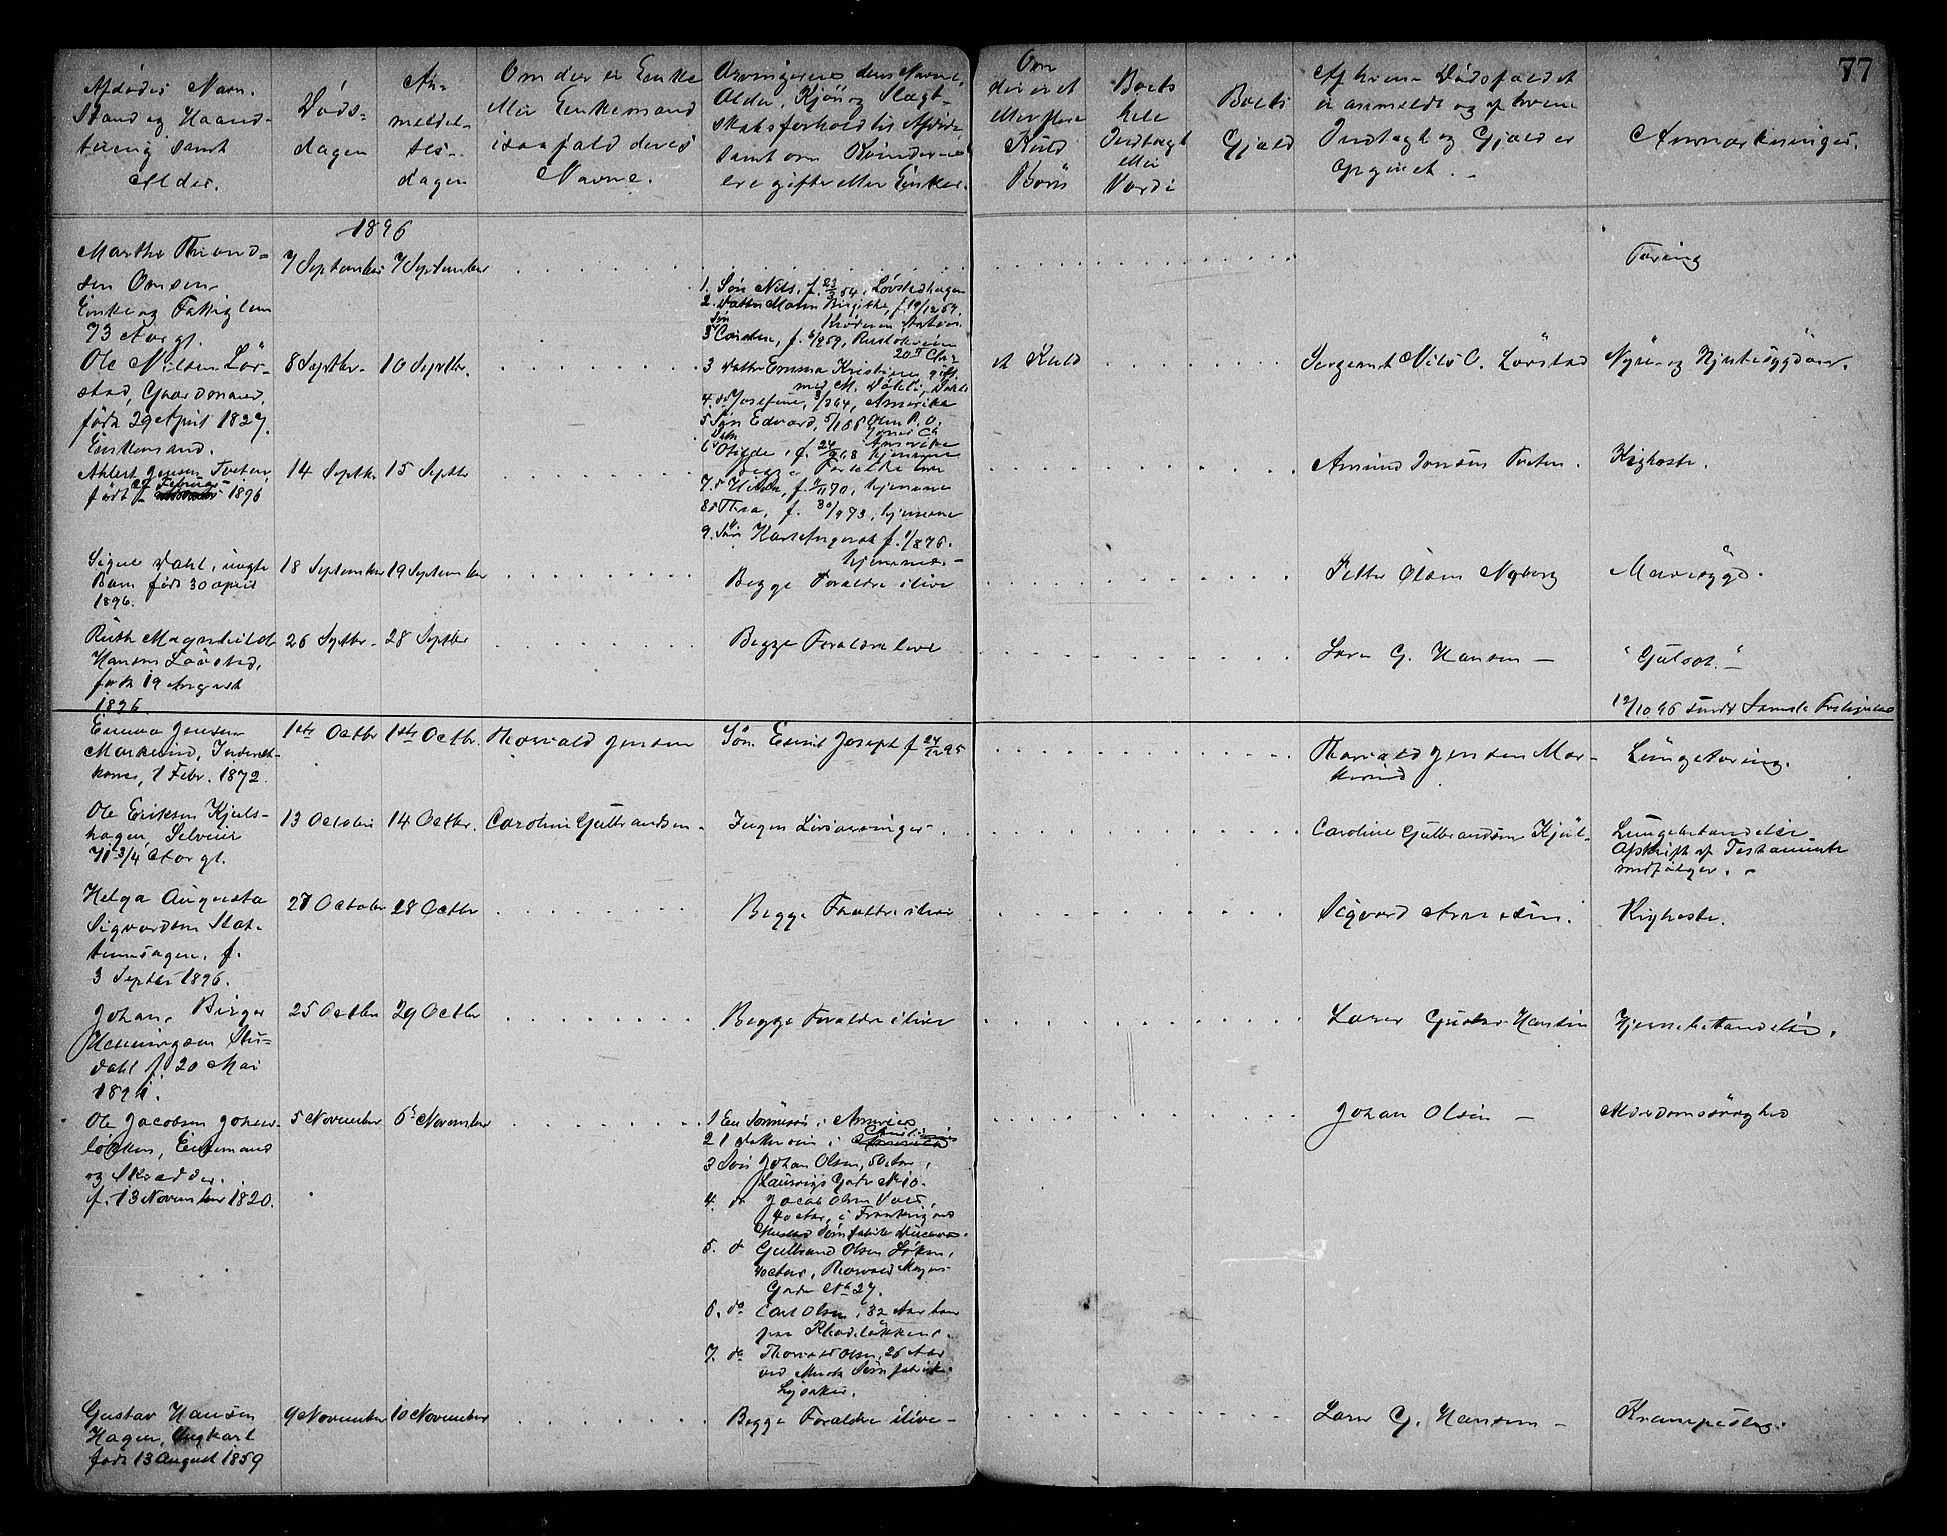 77
Afdødes Navn,
Stand og Haand-
tering samt
Alder.
Døds-
dagen
An-
meldel-
ses-
dagen
Om der er Enke
eller Enkemand
isaafald deres
Navne.
Arvingernes deres Navne,
Alder, Kjøn og Slægt-
skabsforhold til Afdøde
samt om Kvinderne
ere gifte eller Enker.
Om
der er et
eller flere
Kuld
Børn
Boets
hele
Indtægt
eller
Værdi
Boets
Gjæld
Af hvem Dødsfaldet
er anmeldt og af hvem
Indtægt og Gjæld er
opgivet.
Anmærkninger.
1896
Marthe Thrond-
sen Omsen
Enke og Fattiglem
73 Aar gl.
7 September
7 September
Tæring
Ole Nilsen Løv-
stad, Gaardmand,
født 29 April 1827.
Enkemand.
8 Septbr.
10 Septbr.
1. Søn Nils, f. 23/3 54, Løvstadhagen
2. Datter Maren Birgithe, f. 19/12 57
Søn
3 Carsten, f. 8/2 59,
3 Datter Emma Kristine, gift
med M. Døhli, Døhli
4. do Josefine, 3/3 64, Amerika
5 Søn Edvard, 5/1 66
Amerika
6 Otilde, f. 24/9 68 hjemme
7. do f. 9/11 70, hjemme
8 do Thea, f. 30/9 73, hjemme
9. Søn Karl August f. 1/8 76.
hjemme
et Kuld
Sergeant Nils O. Løvstad
Nyre- og Hjertesygdom.
Ahlert Jensen Tveten,
født 27 Februar 1896
14 Septbr
15 Septbr
begge Forældre leve
Amund Jensen Tveten.
Kighoste.
Signe Dahl, uægte
Barn født 30 April
1896.
18 September
19 September
Begge Forældre ilive
Petter Olsen Nyborg
Mavesyge.
Ruth Magnhild
Hansen Løvstad,
født 19 August
1896.
26 Septbr.
28 Septbr
Begge Forældre leve
Lars G. Hansen
"Gulsot."
12/10 96 sendt Samlefortegnelse
Emma Jensen
Markerud, Inderst-
kone, 1 Febr. 1872.
1ste Octbr
1ste Octbr.
Thorvald Jensen
Søn Emil Joseph f. 24/12 95
Thorvald Jensen Mar-
kerud
Lungetæring.
Ole Eriksen Kjuls-
hagen, Selveier
71 3/4 Aar gl.
13 October
14 Octbr.
Caroline Gulbrandsen
Ingen Livsarvinger
Caroline Gulbrandsen Kjul-
Lungebetændelse
Afskrift af Testamente
medfølger.
Helga Augusta
Sigvardsen Slat-
tumshagen, f.
3 Septbr 1896.
27 October
28 Octbr
Begge Forældre ilive
Sigvard Arnesen.
Kighoste.
Johan Birger
Henningsen Stu-
dahl f. 20 Mai
1891.
25 Octbr
29 Octbr
Begge Forældre ilive
Lars Gustav Hansen
Hjernebetændelse.
Ole Jacobsen Johns-
løkken, Enkemand
og Skrædder.
f. 13 November 1820.
5 November
6 November
1 En Sønnesøn i Amerika
2 1 i Christiania
3 Søn Johan Olsen, 50 Aar,
Lauervigs Gade No 10.
4. do Jacob Olsen
40 Aar, i
5. do Gulbrand Olsen Løken,
40 Aar, Thorvald Meyers
Gade No 27.
6. do Carl Olsen, 32 Aar
paa Rhodeløkken.
7. do Thorvald Olsen, 26 Aar
ved Mustads Sømfabrik
Lysaker.
Johan Olsen
Alderdomssvaghed
Gustav Hansen
Hagen, Ungkarl
født 13 August 1859
9 November
10 November
Begge Forældre ilive
Lars G. Hansen
Krampeslag.